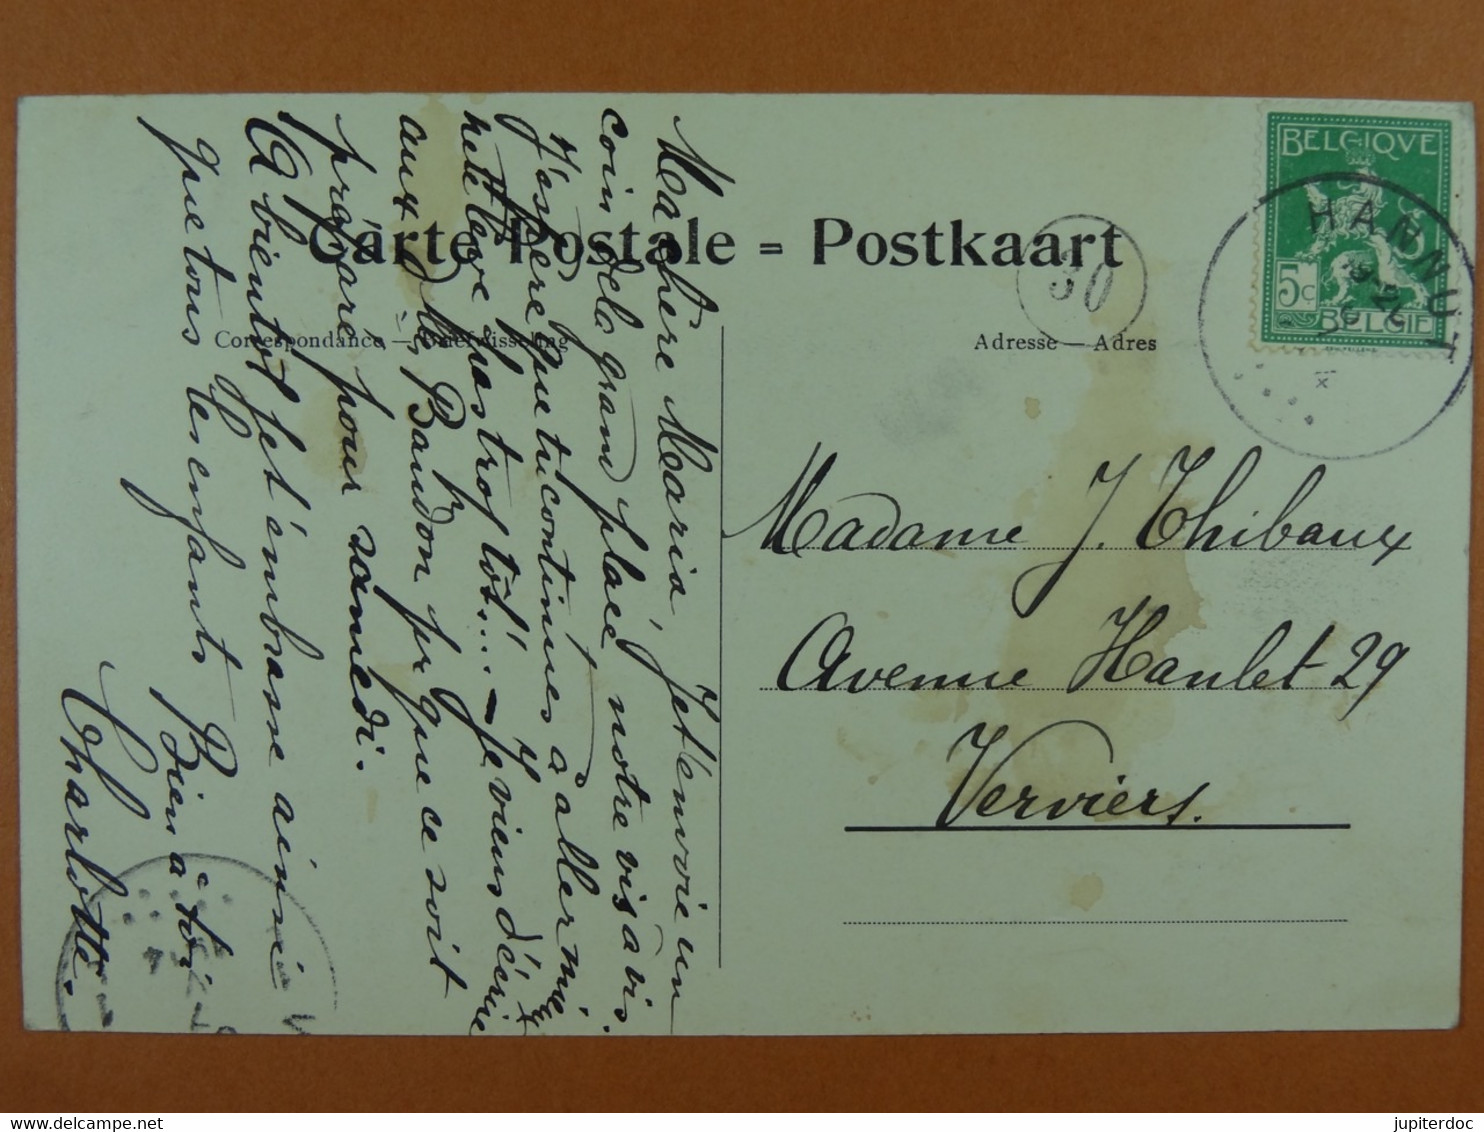 Carte Postale = Postkaart
Correspondance — Briefwisseling
Adresse — Adres
30
BELGIQVE
5c
BELGIE
HANNUT
Madame J. Thibaux
Avenue Hanlet 29
Verviers.
Ma chère Maria, Je t'envoie un
coin de la grand place, notre vis à vis.
J'espère que tu continues à aller mieux
ne te lève pas trop tôt!... — Je viens d'écrire
aux Dlles Baudon pr que ce soit
préparé pour samedi.
A bientôt je t'embrasse ainsi
que tous les enfants
Bien à toi
Charlotte.
jupiterdoc
delcampe.net